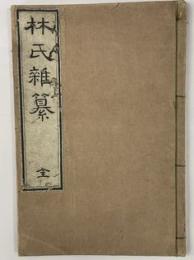 林氏雜纂 全